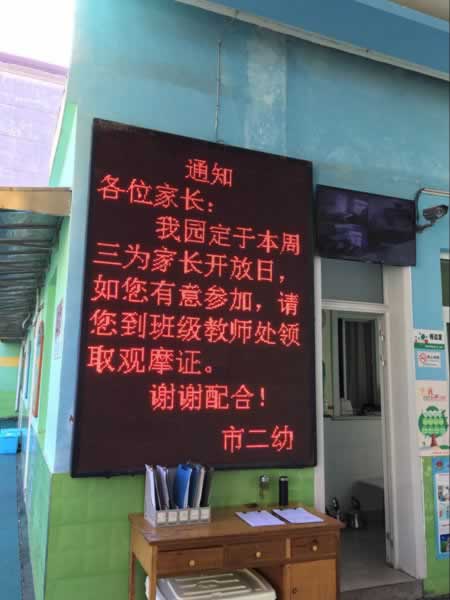 通知
各位家长：
我园定于本周
三为家长开放日，
如您有意参加，请
您到班级教师处领
取观摩证。
谢谢配合！
市二幼